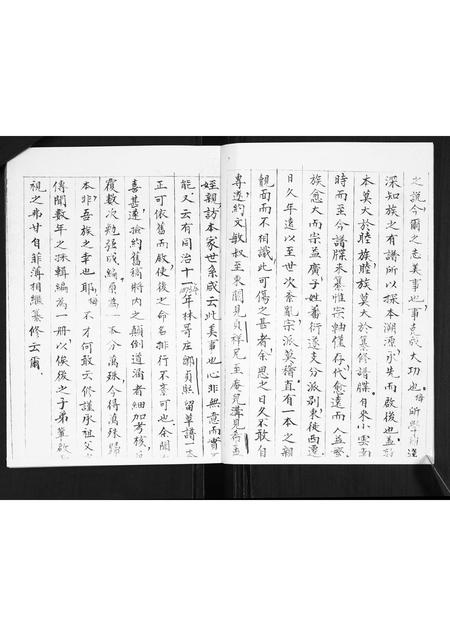 之說今爾之志美事也事克成大功也所學前
深知族之有譜所以探本溯源承先而啟後也蓋
本莫大於睦族睦族莫大於纂修譜牒自來小雲
時而至今譜牒未纂惟宗軸僅存代愈遠而人益繁
族愈大而宗益廣子姓蕃衍遂支分派別東徙西遷
日久年遠以至世次紊亂宗派莫櫛直有一本之親
覩面而不相識此可傷之甚者余思之日久不敢自
專遂約文敏叔至東關見貞祥兄至
姪親訪本家世系咸云此美事也心非無意而實
能又云有同治十一年林哥庄鄉貞照留草譜一本
正可依舊而啟使後之命名排行不紊可也余聞
喜甚遂檢約舊稿將內之顛倒遺漏者細加考核
覆數次勉強成編原為一本分萬殊今得萬殊歸
本非吾族之幸也耶不才何敢云修謹承祖父
傳聞數年之採輯編為一冊以俟後之子弟輩啟
視之弗甘自菲薄相繼纂修云爾